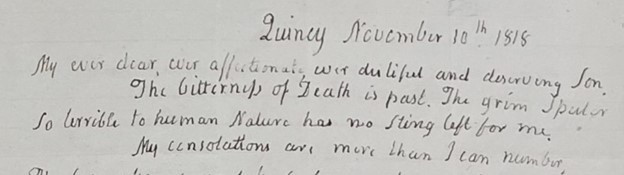 Quincy November 10th. 1818
My ever dear, ever affectionate, ever dutiful and deserving Son.
The bitterness of Death is past. The grim Spector
So terrible to human Nature has no Sting left for me.
My consolations are more than I can number.